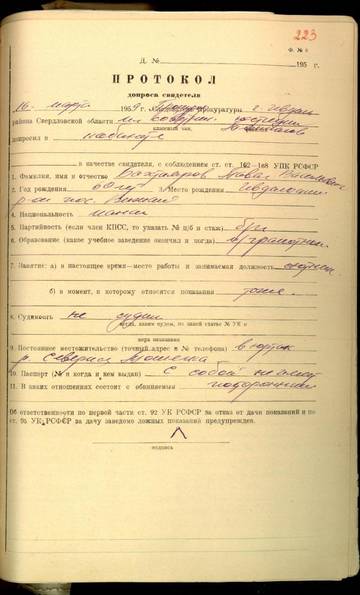 223
Ф. № 8
Д. № 195 г.
ПРОТОКОЛ
допроса свидетеля
16 марта 1959 г. прокуратуры г. Ивдель
района Свердловской области
классный чин,
допросил в кабинете
в качестве свидетеля, с соблюдением ст. ст. 162—168 УПК РСФСР
1. Фамилия, имя и отчество Бахтияров Павел Васильевич
2. Год рождения 60 лет 3. Место рождения Ивдельский
р-он пос.
4. Национальность манси
5. Партийность (если член КПСС, то указать № п/б и стаж) б/п
6. Образование (какое учебное заведение окончил и когда)
7. Занятие: а) в настоящее время—место работы и занимаемая должность охотник
б) в момент, к которому относятся показания тоже
8. Судимость не судим
когда, каким судом, по какой статье УК и
мера наказания
9. Постоянное местожительство (точный адрес и № телефона) в юртах
р. Северная Тошемка
10. Паспорт (№ и когда и кем выдан) С собой не имеет
11. В каких отношениях состоит с обвиняемым посторонний
Об ответственности по первой части ст. 92 УК РСФСР за отказ от дачи показаний и по
ст. 95 УК РСФСР за дачу заведомо ложных показаний предупрежден.
подпись